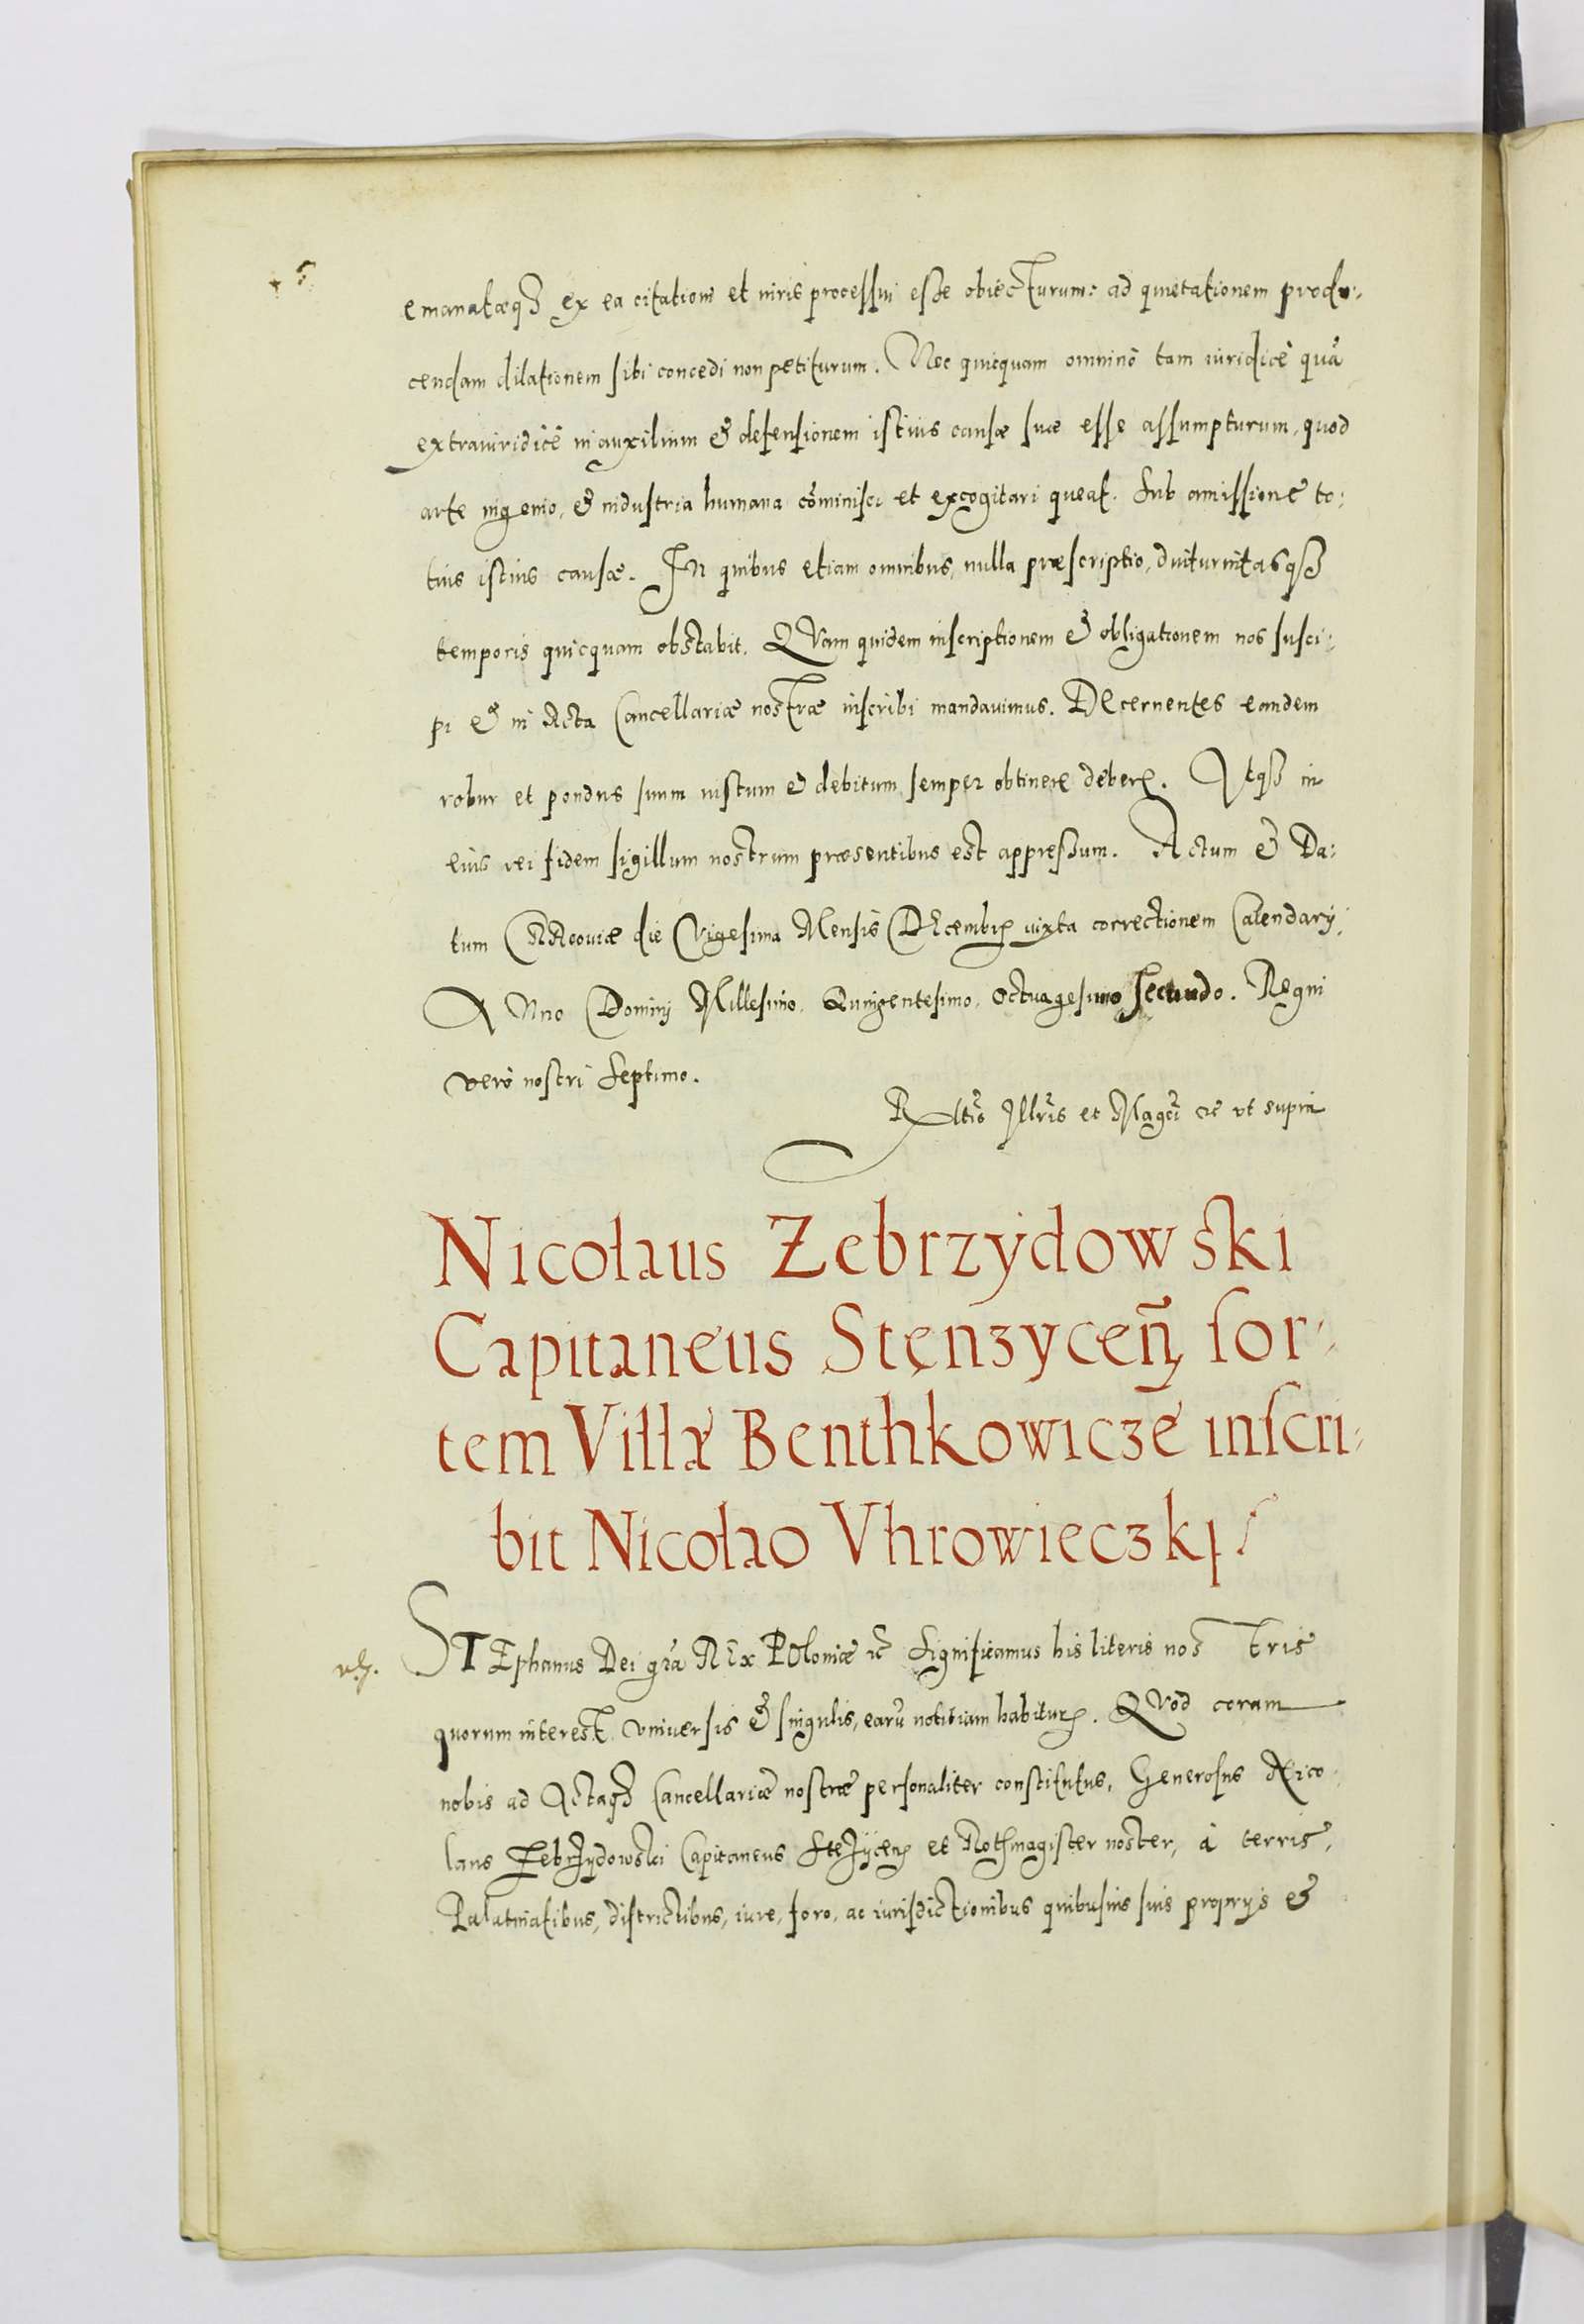 emanatæq3 ex ea citatione et iuris processui esse obiecturum: ad quietationem produ:
cendam dilationem sibi concedi non petiturum. Nec quicquam omninò tam iuridicè quā
extraiuridicè in auxilium & defensionem istius causæ suæ esse assumpturum, quod
arte ingenio, & industria humana cōminisci et excogitari queat. Sub amissione to:
tius istius causæ. In quibus etiam omnibus, nulla præscriptio, diuturnitasq3
temporis quicquam obstabit. QVam quidem inscriptionem & obligationem nos susci:
pi & in Acta Cancellariæ nostræ inscribi mandavimus. DEcernentes eandem
robur et pondus suum iustum & debitum semper obtinere debere. Atq3 in
eius rei fidem sigillum nostrum præsentibus est appressum. Actum & Da:
tum CRAcoviæ die Vigesima Mensis DEcembris iuxta correctionem Calendarij,
ANno Domini Millesimo, Quingentesimo, Octuagesimo Secundo. Regni
verò nostri Septimo.
Rltĩo Illris et Magci &c ut supra
Nicolaus Zebrzydowski
Capitaneus Stęnzyceñ sor-
tem Villæ Benthkowicze inscri-
bit Nicolao Vhrowieczki
STEphanus Dei grã REx POloniæ &c Significamus his literis nostris
quorum interest universis & singulis, earū notitiam habituris. QVòd coram
nobis ad Actaq3 Cancellariæ nostræ personaliter constitutus, Generosus Nico-
laus Zebrzydowski Capitaneus Stęzycen et Rothmagister noster, à terris,
Palatinatibus, districtibus, iure, foro, ac iurisdictionibus quibusuis suis proprijs &